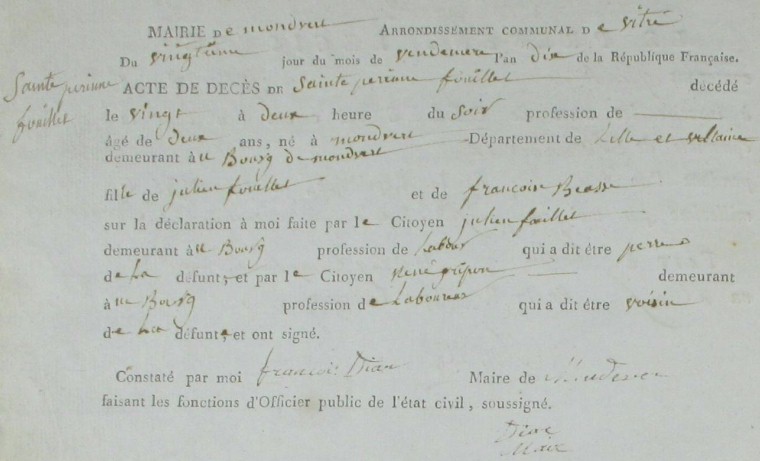 MAIRIE De mondvert ARRONDISSEMENT COMMUNAL De vitré
Du vingtieme jour du mois de vendemere l'an dix de la République Française.
Sainte perinne fouillet
ACTE DE DECÈS DE Sainte perinne fouillet décédé
le vingt à deux heure du Soir profession de
âgé de deux ans, né à mondvert Département de Lille et villaine
demeurant àu Bourg de mondvert
fille de julien fouillet et de francoise Beasse
sur la déclaration à moi faite par le Citoyen julien fouillet
demeurant àu Bourg profession de Labour qui a dit être perre
de La défunte et par le Citoyen René demeurant
àu Bourg profession de Laboureur qui a dit être voisin
de La défunte et ont signé.
Constaté par moi francois Maire de
faisant les fonctions d'Officier public de l'état civil, soussigné.
Maire